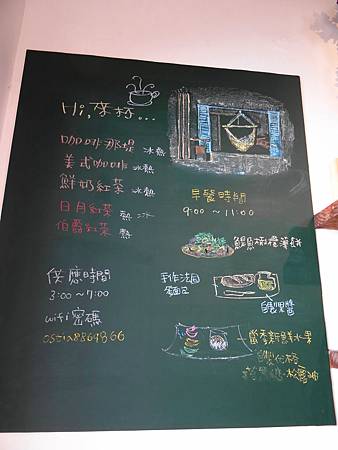 Hi, 來杯...
咖啡那堤 冰熱
美式咖啡 冰熱
鮮奶紅茶 冰熱
日月紅茶 熱
伯爵紅茶 熱
供應時間
3:00~7:00
wifi 密碼
早餐時間
9:00~11:00
鮪魚橄欖薄餅
手作法國
麵包
自製果醬
當季新鮮水果